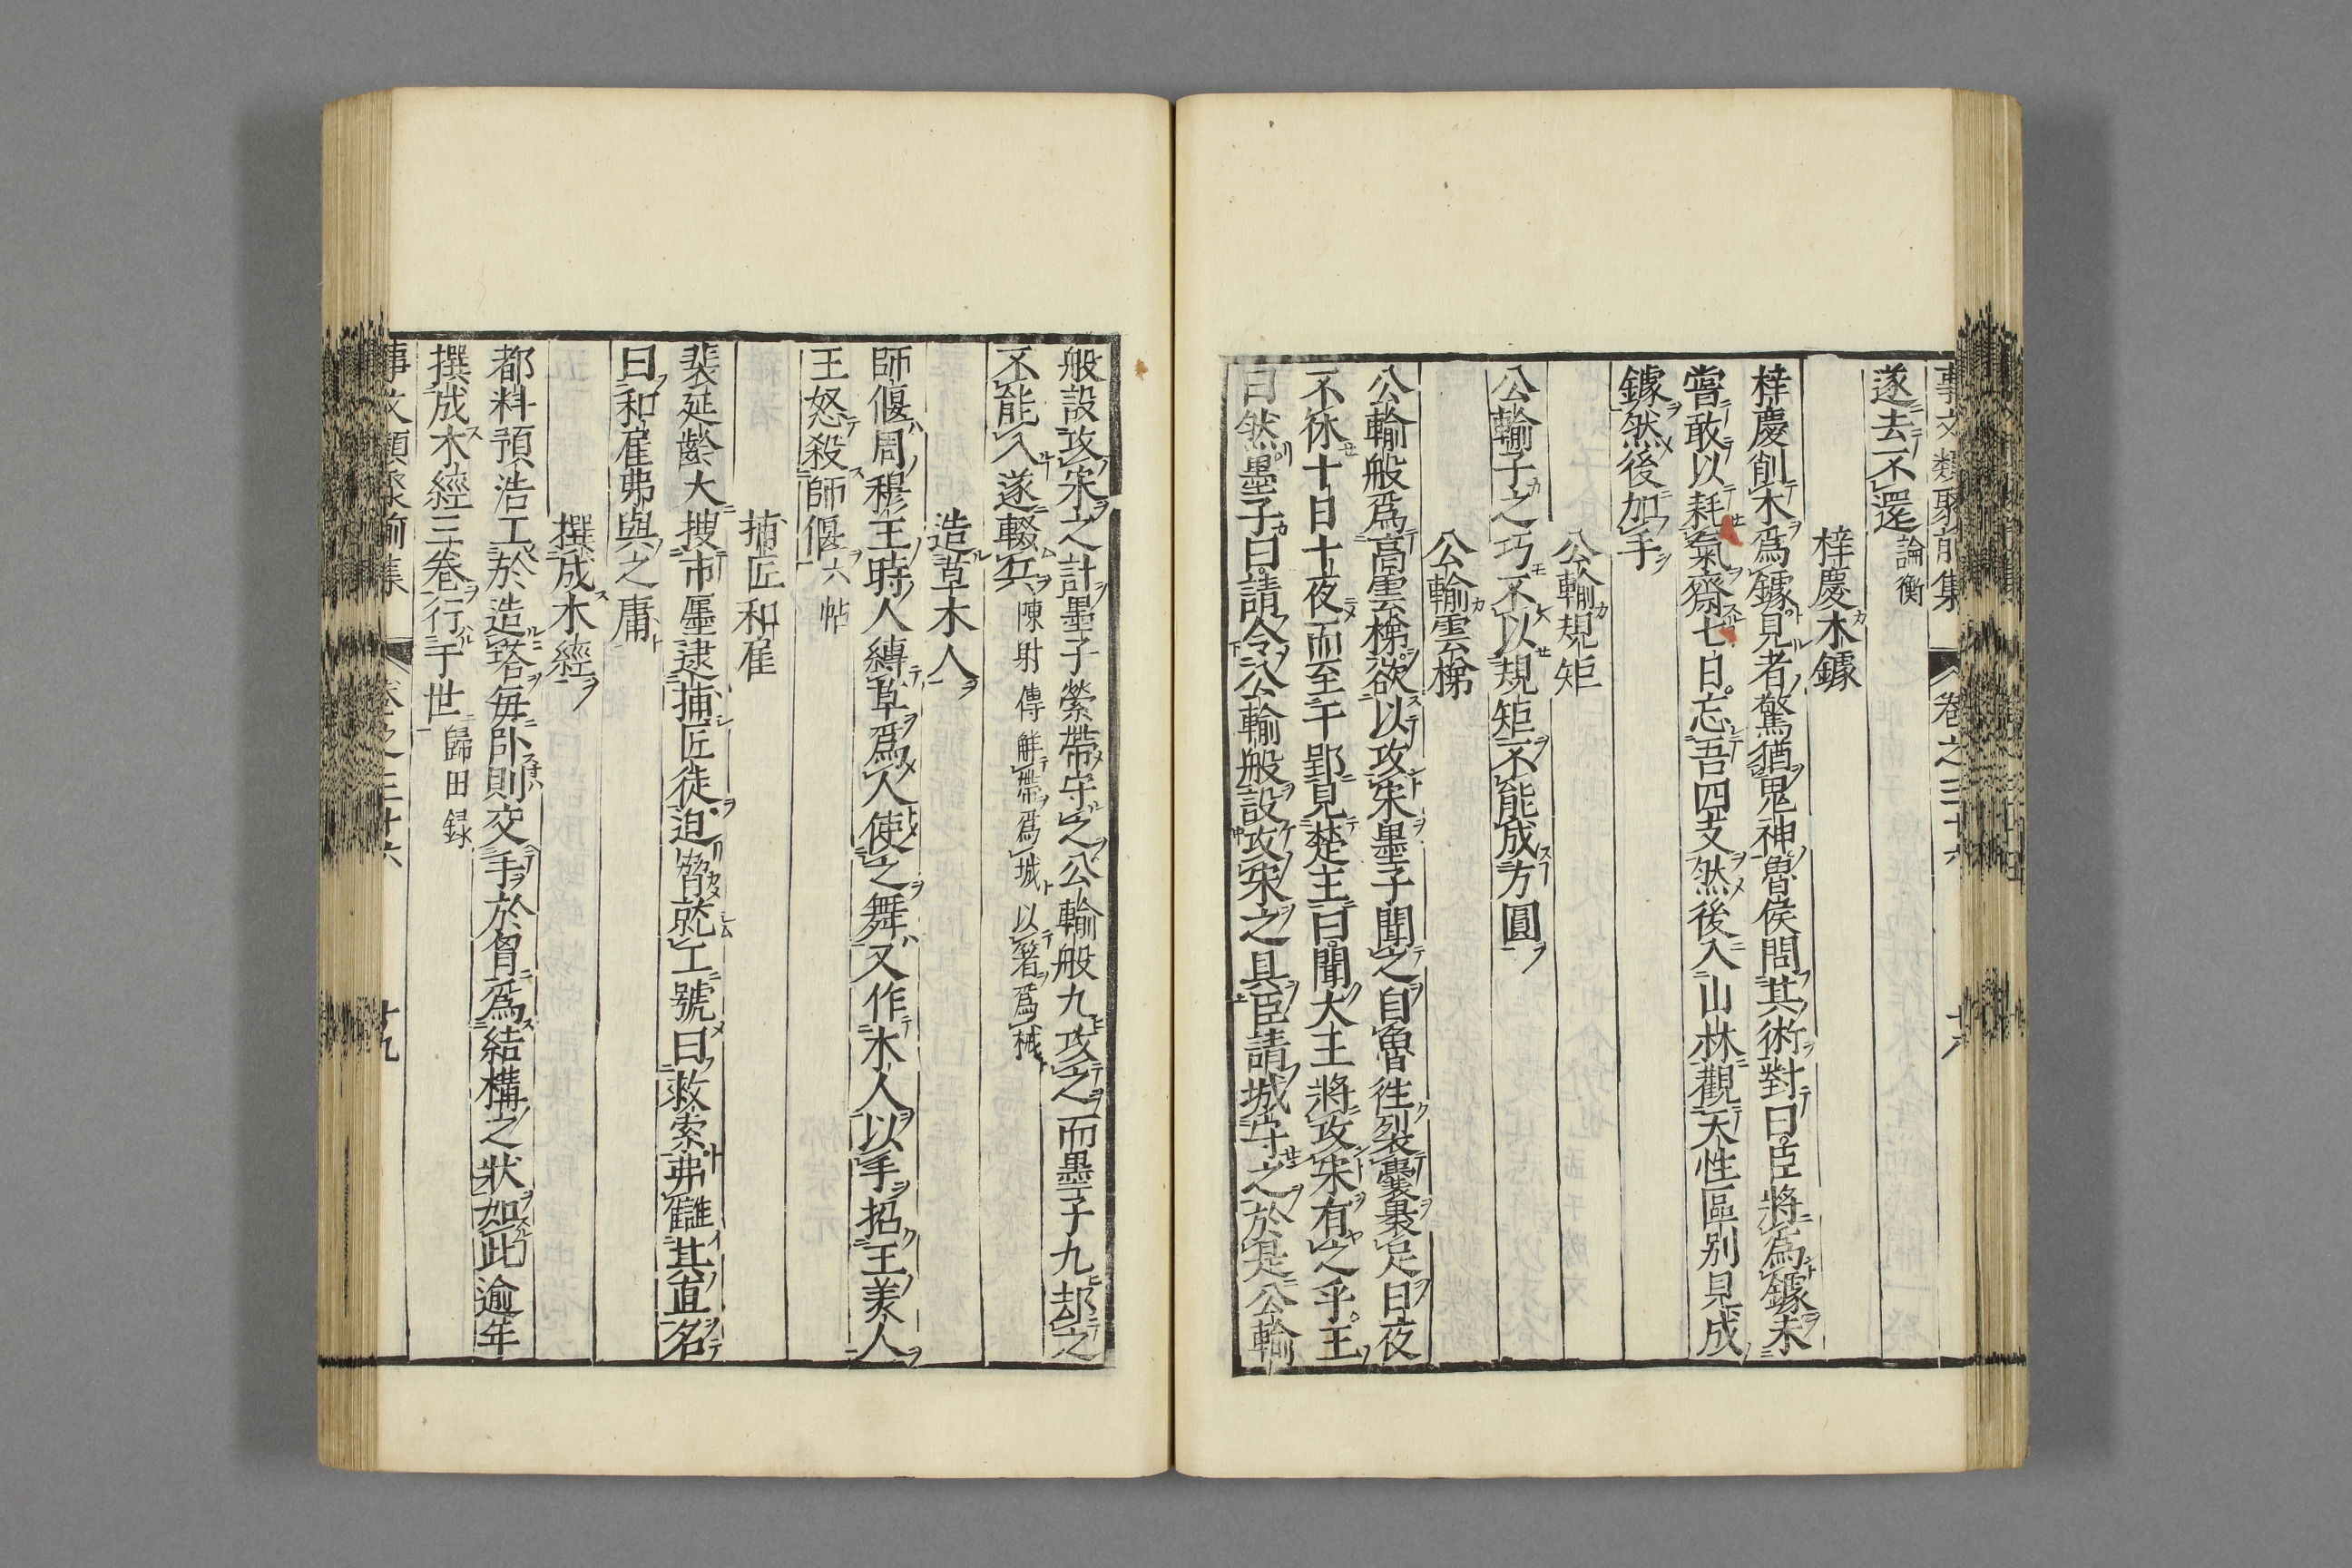 事文類聚前集 卷之三十六 十八
遂去不還 論衡
梓慶木鐻
梓慶削木爲鐻見者驚猶鬼神魯侯問其術對曰臣將爲鐻未
嘗敢以耗氣齋七日忘吾四支然後入山林觀天性區别見成
鐻然後加手
公輸規矩
公輸子之巧不以規矩不能成方圓
公輸雲梯
公輸般爲高雲梯欲以攻宋墨子聞之自魯徃裂裳裹足日夜
不休十日十夜而至于郢見楚王曰聞大王將攻宋有之乎王
曰然墨子曰請令公輸般設攻宋之具臣請城守之於是公輸
般設攻宋之計墨子縈帶守之公輸般九攻之而墨子九却之
不能入遂輟兵 陳射傳 觧帶爲城以箸爲械
造草木人
師偃周穆王時人縳草爲人使之舞又作木人以手招王美人
王怒殺師偃 六帖
捕匠和雇
裴延齡大搜市廛逮捕匠徒迫脅就工號曰敕索弗讎其直名
曰和雇弗與之庸
撰成木經
都料預浩工於造塔每卧則交手於胷爲結構之狀如此逾年
撰成木經三卷行于世 歸田録
事文類聚前集 卷之三十六 十九